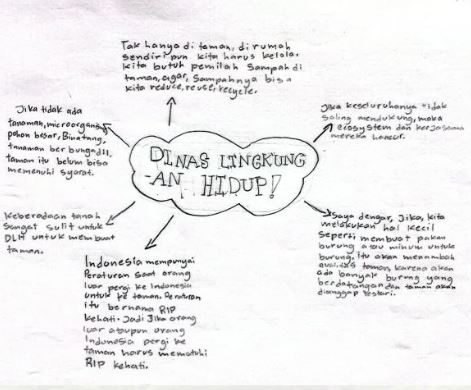 Tak hanya di taman, di rumah
sendiri pun kita harus kelola.
Kita butuh pemilah sampah di
taman, agar, sampahnya bisa
kita reduce, reuse, recycle.
Jika tidak ada
tanaman, microorganisme
pohon besar, Binatang,
tanaman berbunga dll,
taman itu belum bisa
memenuhi syarat.
DINAS LINGKUNG
-AN HIDUP!
Jika keseluruhanya tidak
saling mendukung, maka
ecosystem dan kerjasama
mereka hancur.
Keberadaan tanah
Sangat sulit untuk
DLH untuk membuat
taman.
Saya dengar, Jika, kita
melakukan hal kecil
seperti membuat pakan
burung atau minum untuk
burung, itu akan menambah
taman karena akan
ada banyak burung yang
berdatangan dan taman akan
dianggap lestari.
Indonesia mempunyai
Peraturan saat orang
luar pergi ke Indonesia
untuk ke taman. Peraturan
itu bernama RIP
Kehati. Jadi Jika orang
luar ataupun orang
Indonesia pergi ke
taman harus mematuhi
RIP Kehati.